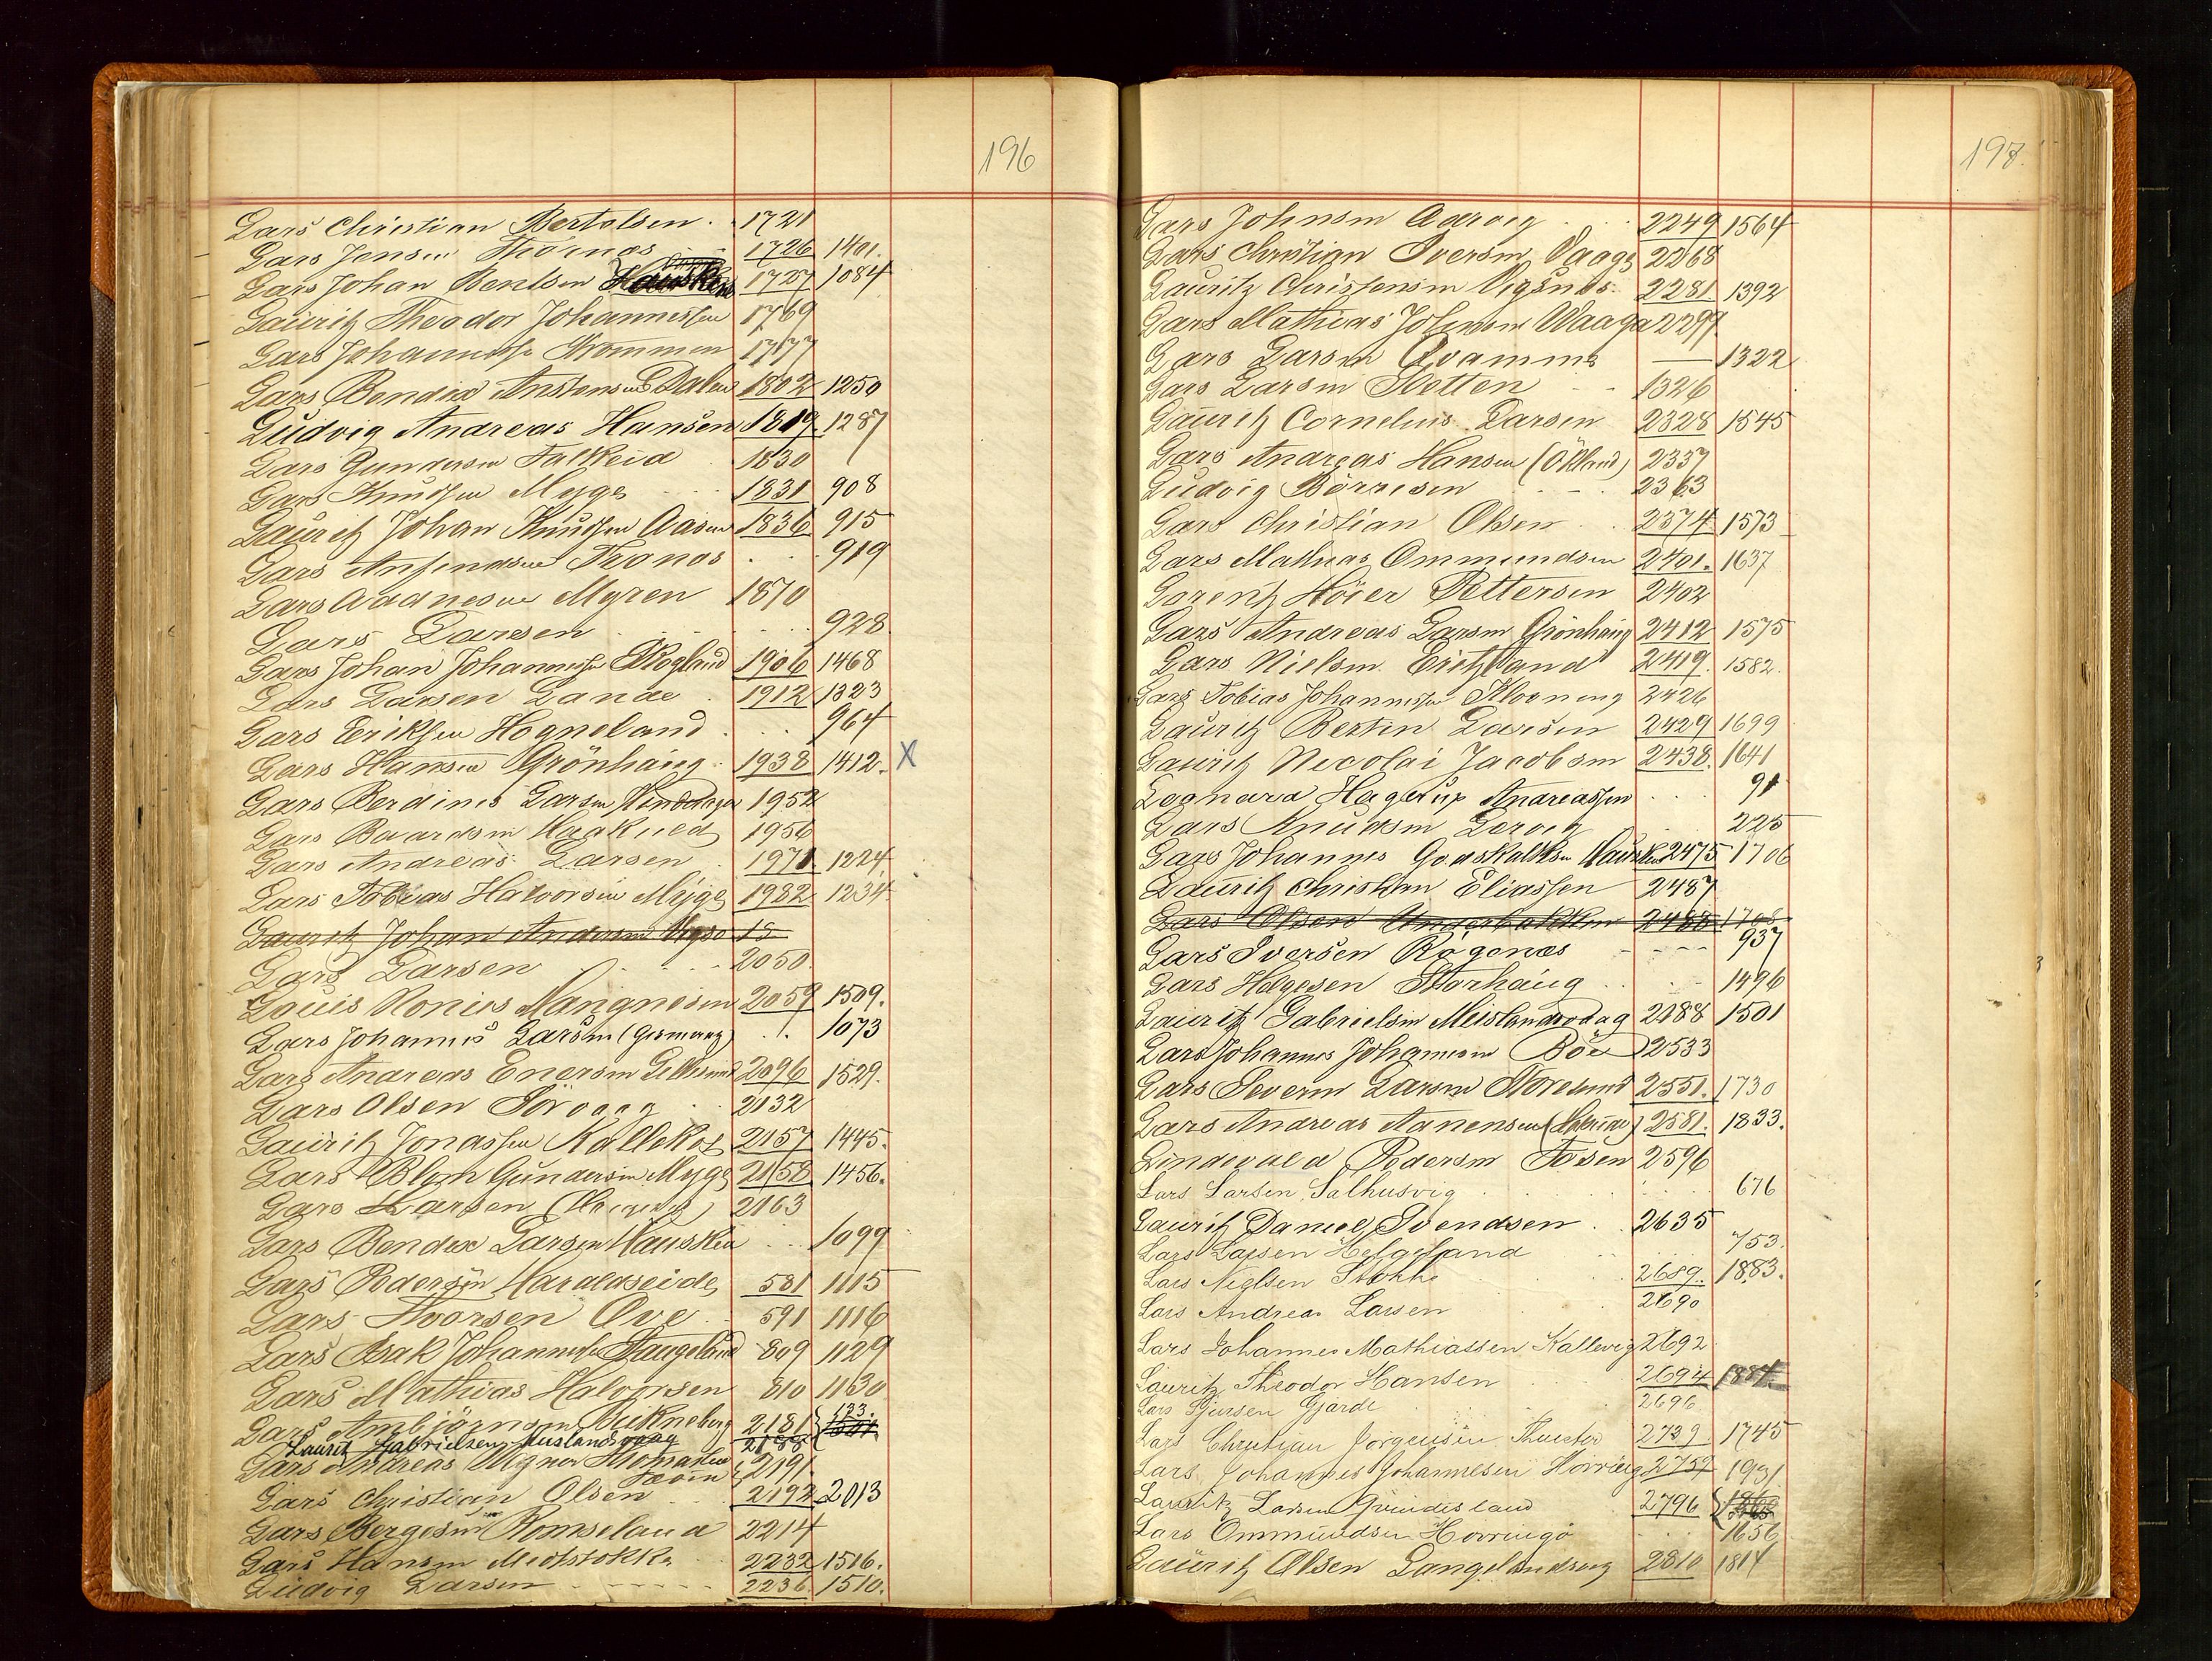 196
Lars Christian Bertelsen . . 1721
Lars Jensen Thornes 1726 1401.
Lars Johan Bentsen Hausken 1727 1084
Lauritz Theodor Johannessen 1769
Lars Johannessen Krommen 1777
Lars Bendix Anstensen Dalen 1802 1250
Ludvig Andreas Hansen 1819 1287
Lars Gundersen Falkeid 1830
Lars Knudsen Myge 1831 908
Lauritz Johan Knudsen Aasen 1836 915
Lars Anfindsen Tronos . . 919
Lars Aadnesen Myren 1870
Lars Larsen . . . 928.
Lars Johan Johannessen Skogland 1906 1468
Lars Larsen Lande . 1912 1323
Lars Eriksen Hogneland . . . 964
Lars Hansen Grönhaug . 1938 1412. X
Lars Berdines Larsen 1952
Lars Baardsen Haakneld 1956
Lars Andreas Larsen . 1971 1224
Lars Tobias Halvorsen Myge 1982 1234
Lauritz Johan Andersen 15
Lars Larsen 2050.
Louis Konius Mangnesen 2059 1509.
Lars Johannes Larsen (Germany) . . 1073
Lars Andreas Enersen 2096 1529.
Lars Olsen Sörvaag . . 2132
Lauritz Jonassen Kallekot 2157 1445.
Lars Blom Gundersen Myge 2158 1456.
Lars Larsen 2163
Lars Bendix Larsen Hausken . . 1099
Lars Pedersen Haraldseide 581 1115
Lars Ivarsen Ove . 591 1116
Lars Isak Johannessen Haugeland 809 1129
Lars Mathias Halvorsen 810 1130
Lars Ambjörnsen Birkneberg 2181 123.
Lauritz Gabrielsen Meslandsvaag 2188
Lars Andreas Wigner Thomassen 2191
Lars Christian Olsen 2192 2013
Lars Bergesen Romseland 2214
Lars Hansen Midtstokke 2232 1516.
Ludvig Larsen . . . . . 2236 1510.
197.
Lars Johnsen Aarvig . . 2249 1564
Lars Christian Iversen Vaage 2268
Lauritz Christensen Vigsnes 2281 1392
Lars Mathias Johnsen Waaga 2299
Lars Larsen Qvamme — 1322
Lars Larsen Sletten - - 1326
Lauritz Cornelius Larsen 2328 1545
Lars Andreas Hansen (Ökland) 2337
Ludvig Börresen . - . 2363
Lars Christian Olsen . . 2374 1573
Lars Mathias Ommundsen 2401. 1637
Lorentz Höier Pettersen 2402
Lars Andreas Larsen Grönhaug 2412 1575
Lars Nielsen Eritzland 2419. 1582.
Lars Tobias Johannessen Kloening 2426
Lauritz Bertin Larsen 2429 1699
Lauritz Nicolai Jacobsen 2438. 1641
Leonard Hagerup Andreassen . . . 91
Lars Knudsen Lervig 225
Lars Johannes Godskalksen Hausken 2475 1706
Lauritz Christian Eliassen 2487
Lars Olsen Underbakken 2488 1708
Lars Iversen Rogenæs - - - - 937
Lars Helgesen Storhaug . . - - 1496
Lauritz Gabrielsen Meislandsvaag 2188 1501
Lars Johannes Johannesen Böe 2533
Lars Severin Larsen Storesund 2551. 1730
Lars Andreas Aanensen 2581. 1833.
Lindevald Pedersen Tosen 2596
Lars Larsen Salhusvig . . . . 676
Lauritz Daniel Svendsen . . 2635
Lars Larsen Helgeland 753.
Lars Nielsen Stokke 2689. 1883.
Lars Andreas Larsen . . 2690
Lars Johannes Mathiassen Kallevig 2692
Lauritz Theodor Hansen 2694 1884
Lars Sjursen Gjerde 2696
Lars Christian Jorgensen 2729 1745
Lars Johannes Johannesen 2757 1931
Lauritz Larsen Grindesland 2796
Lars Ommundsen Hovringö . . 1656
Lauritz Olsen Langelandsvig 2810 1814